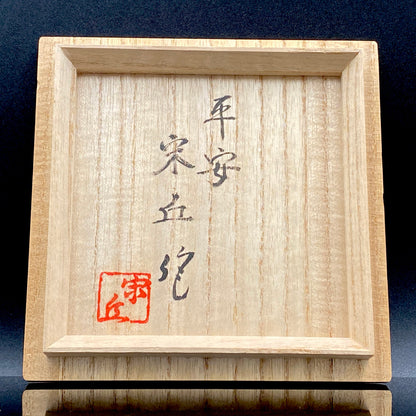 平安
宋丘作
宋丘